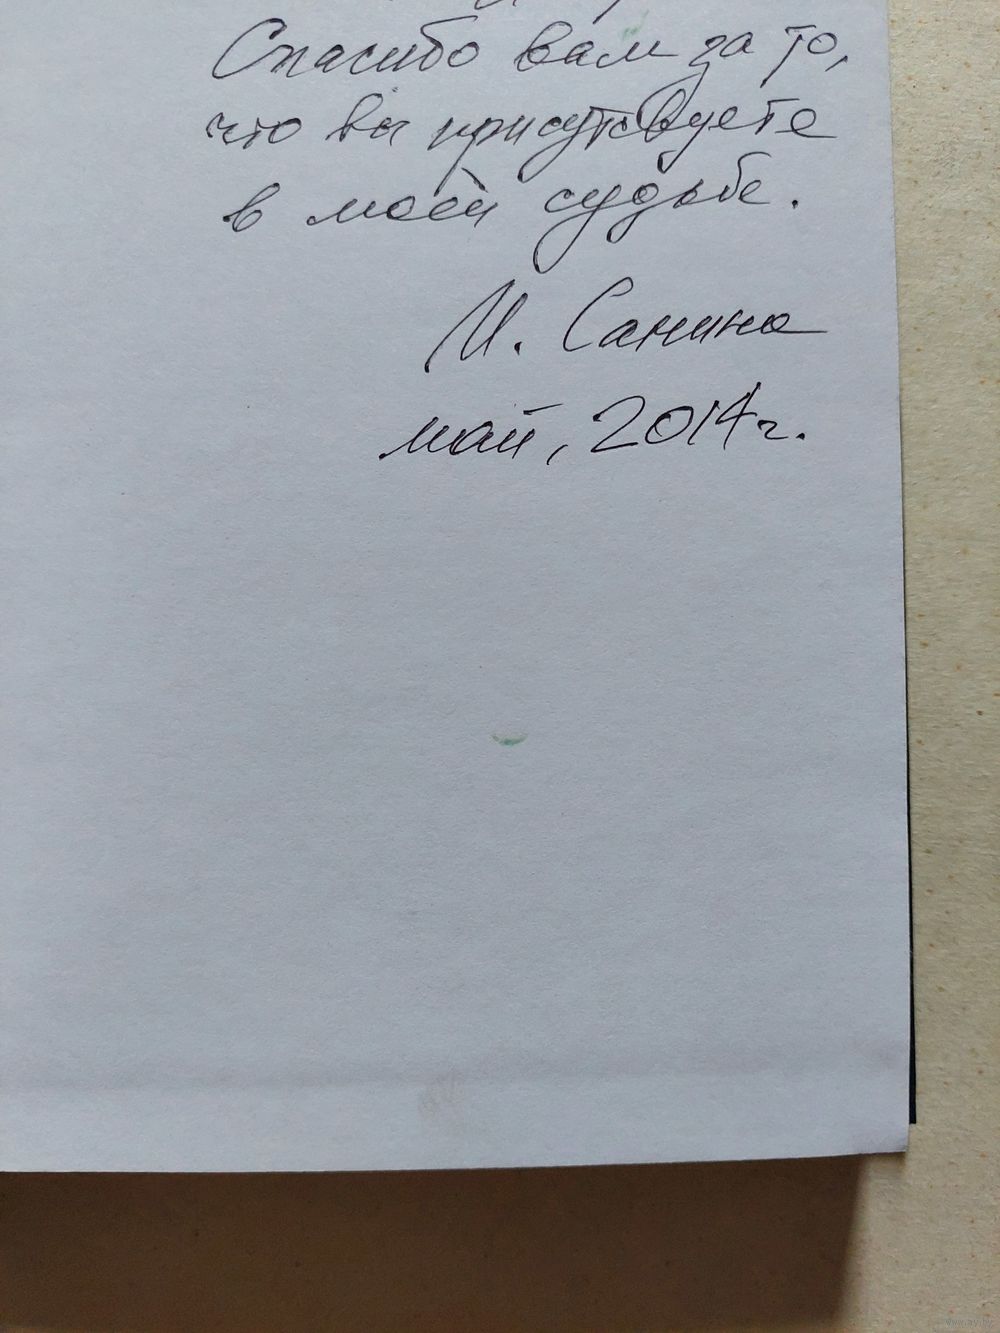 Спасибо вам за то,
что вы присутсвуете
в моей судьбе.
И. Санина
май, 2014г.